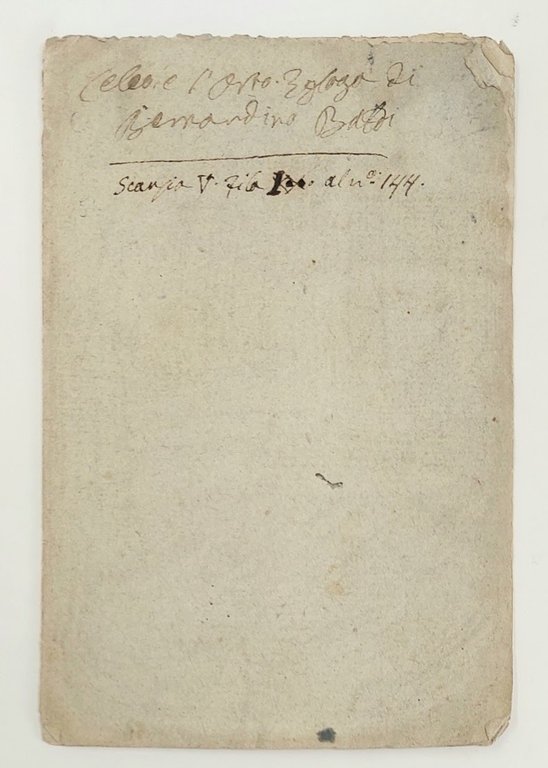 Celeo, e l'Orto. Egloga di
Bernardino Baldi
Scanzia V. Fila al n.º 144.